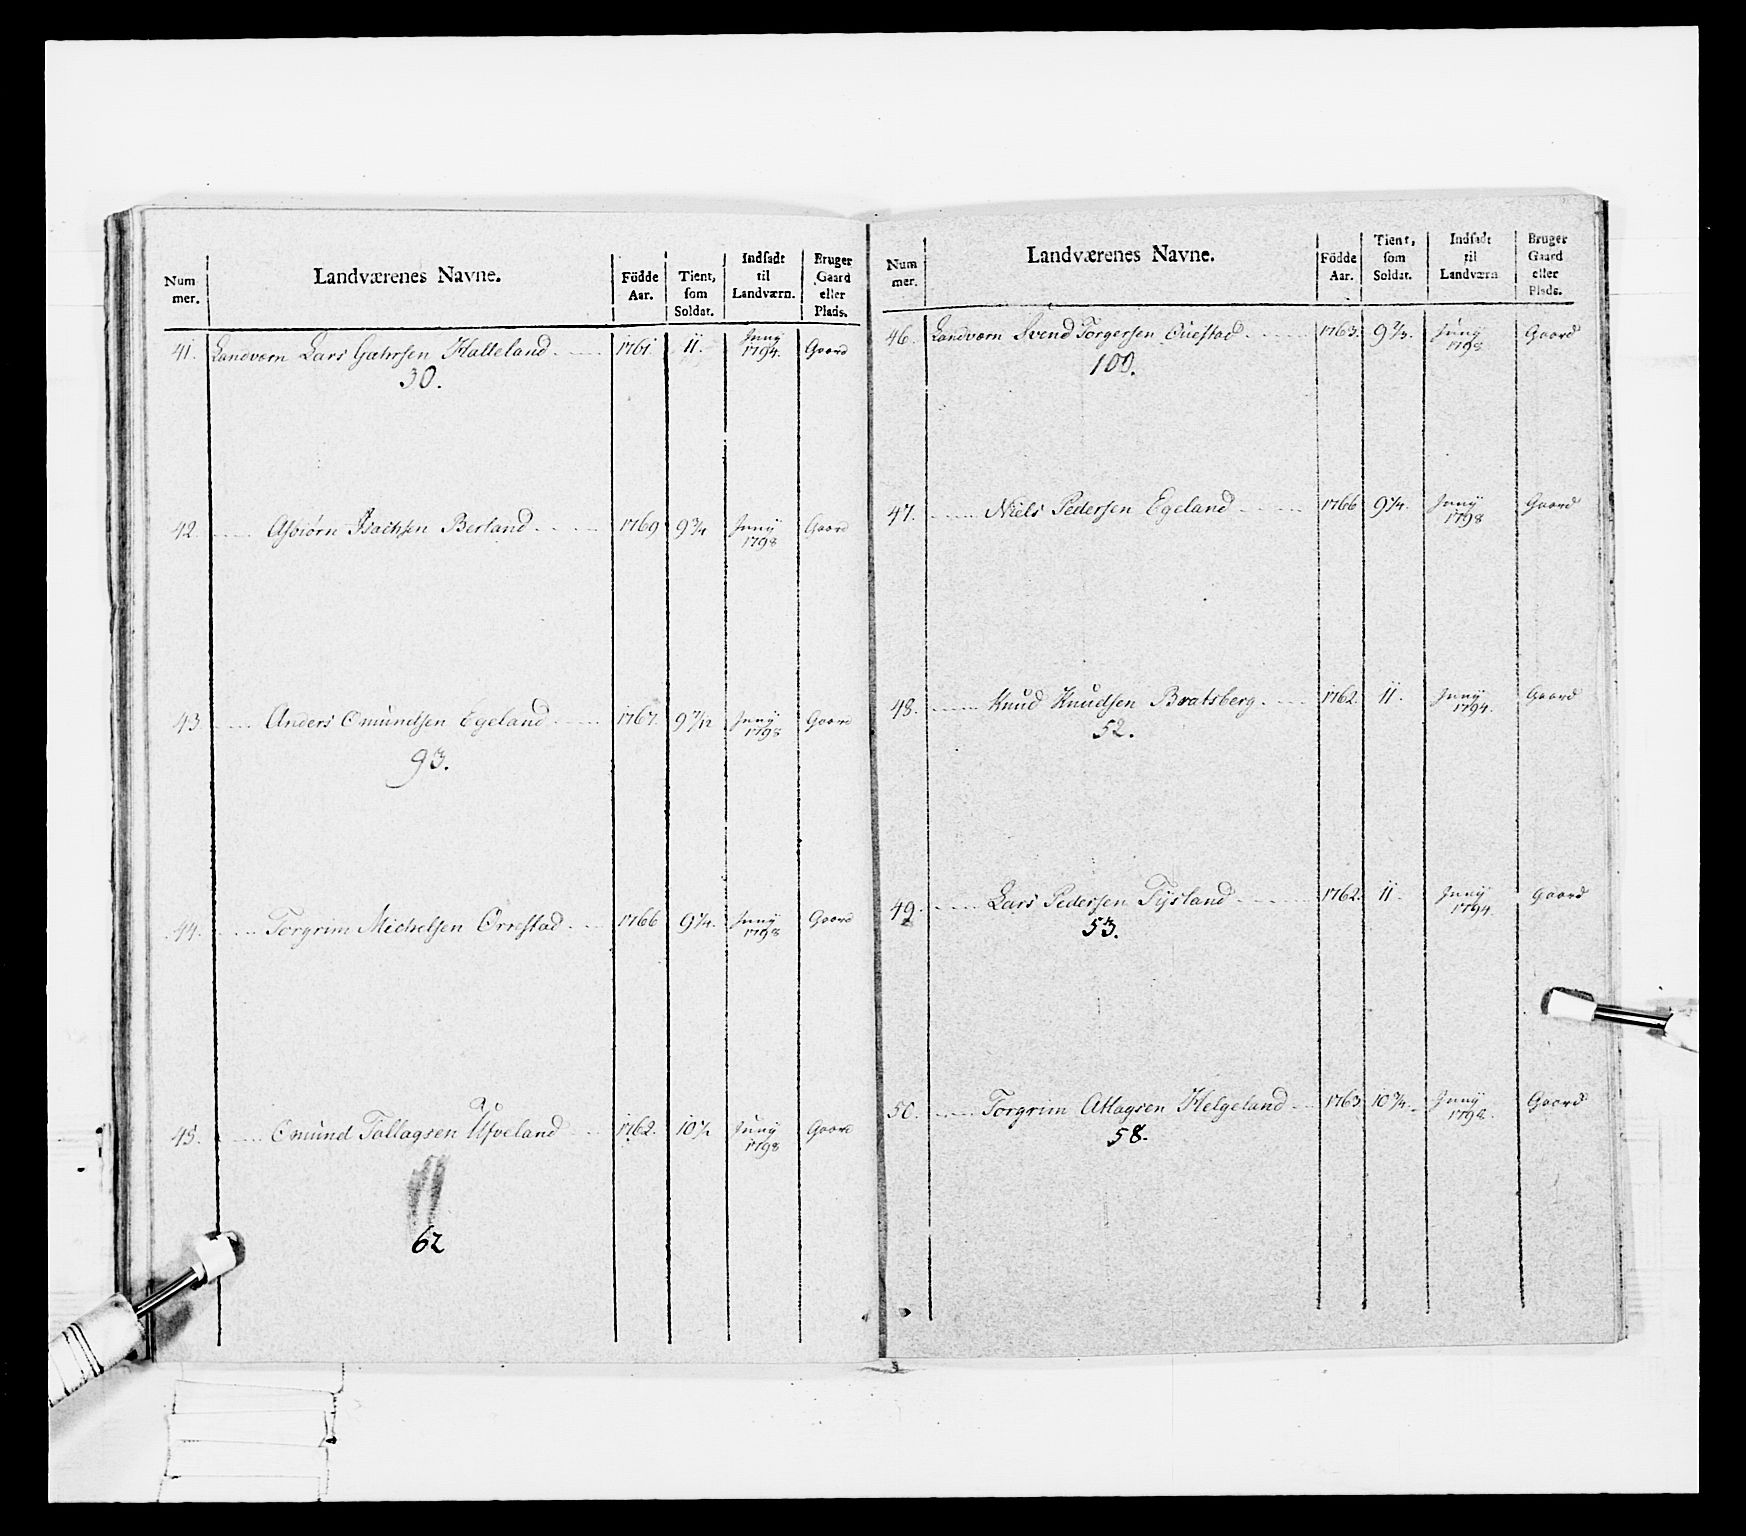 Num mer. | Landværenes Navne. | Födde Aar. | Tient, som Soldat. | Indsadt til Landværn. | Bruger Gaard eller Plads.
41. Landværn Lars Gæhrsen Halleland 1761. 11. Junÿ 1794. Gaard
30.
42. Asbiørn Isachsen Berland 1769 9 3/4 Junÿ 1798 Gaard
43. Anders Omundsen Egeland 1767. 9 7/12 Junÿ 1798 Gaard
93.
44. Torgrim Michelsen Orrestad 1766 9 1/4. Junÿ 1798 Gaard
45. Omund Tollagsen Ufveland 1762. 10 1/2 Junÿ 1798 Gaard
62
Num mer. | Landværenes Navne. | Födde Aar. | Tient, som Soldat. | Indsadt til Landværn | Bruger Gaard eller Plads.
46. Landværn Svend Torgersen Øuestad 1763. 9 2/3. Junÿ 1798 Gaard
100.
47. Niels Pedersen Egeland 1766 9 1/4. Junÿ 1798 Gaard
48. Knud Knudsen Bratsberg 1762. 11. Junÿ 1794. Gaard
52.
49. Lars Pedersen Tÿsland 1762. 11. Junÿ 1794 Gaard
53.
50. Torgrim Atlagsen Helgeland 1763 10 3/4. Junÿ 1798. Gaard
58.